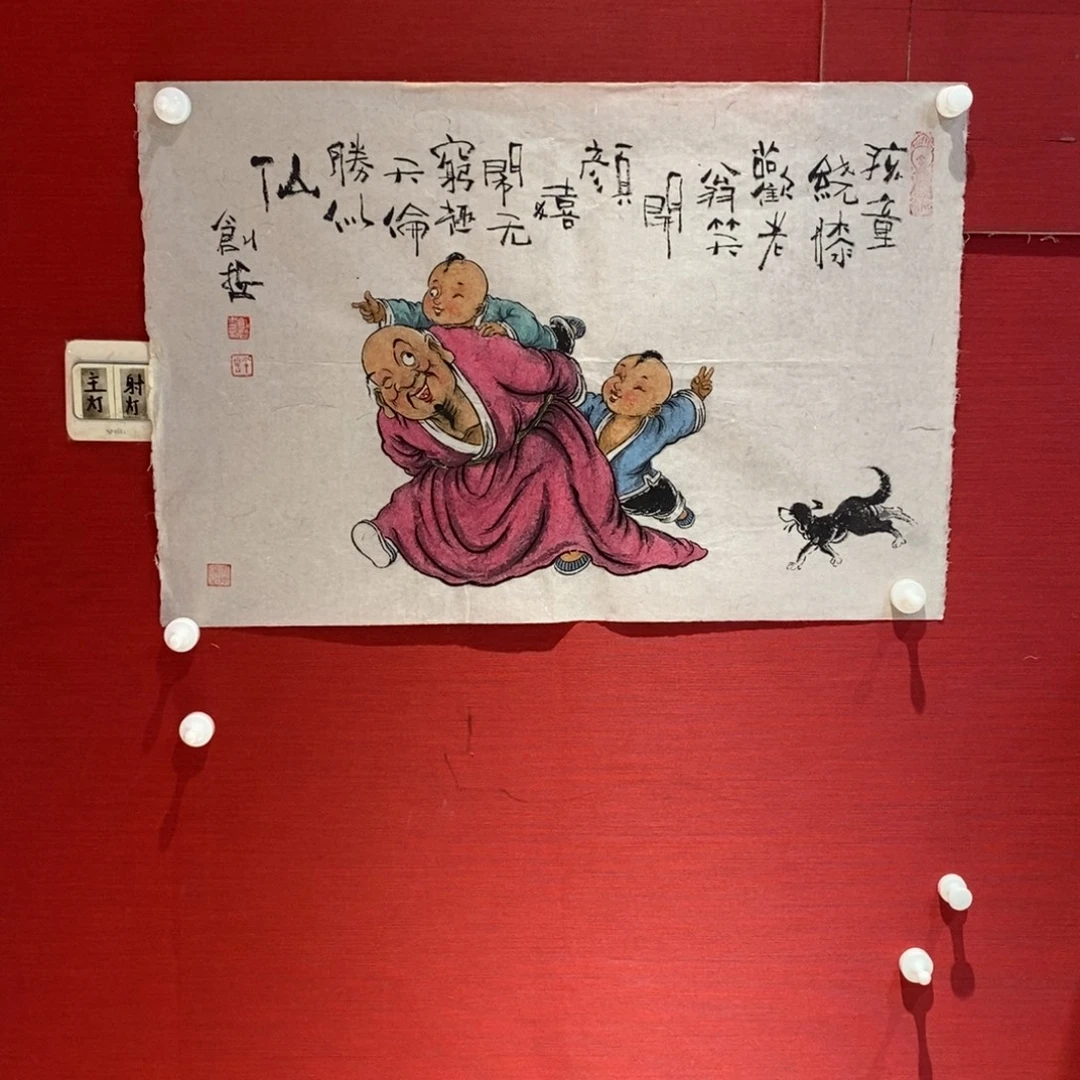 孩童
繞膝
歡老
翁笑
開
顔
嬉
閙无
窮極
天倫
勝似
仙
創
主灯
射灯